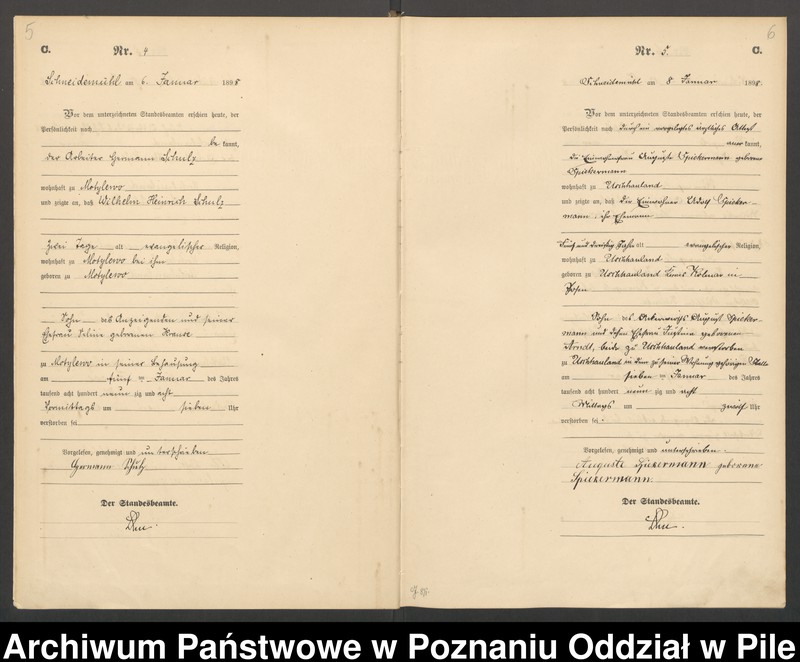 5
C.
Nr. 4
Schneidemühl am 6. Januar 1898
Vor dem unterzeichneten Standesbeamten erschien heute, der
Persönlichkeit nach
be kannt,
der Arbeiter Hermann Schulz
wohnhaft zu Motylewo
und zeigte an, daß Wilhelm Heinrich Schulz
Zwei Tage alt evangelischer Religion,
wohnhaft zu Motylewo bei ihm
geboren zu Motylewo
Sohn des Anzeigenden und seiner
Ehefrau geborenen Krause
zu Motylewo in seiner Behausung
am fünf ten Januar des Jahres
tausend acht hundert neun zig und acht
Vormittags um sieben Uhr
verstorben sei
Vorgelesen, genehmigt und unterschrieben
Hermann Schulz
Der Standesbeamte.
6
Nr. 5.
C.
Schneidemühl am 8 Januar 1898.
Vor dem unterzeichneten Standesbeamten erschien heute, der
Persönlichkeit nach durch ein vorgelegtes ärztliches Attest
aner kannt,
die Einwohnerfrau Auguste Spickermann geborene
Spickermann
wohnhaft zu Uschhauland
und zeigte an, daß die Einwohner Adolf Spicker-
mann, ihr Ehemann
Fünf und dreißig Jahre alt evangelischer Religion,
wohnhaft zu Uschhauland
geboren zu Uschhauland Kreis Kolmar in
Posen
Sohn des Ackerwirths August Spicker-
mann und dessen Ehefrau geborenen
Arndt, beide zu Uschhauland verstorben
zu Uschhauland in dem zu seiner Wohnung gehörigen Stalle
am sieben ten Januar des Jahres
tausend acht hundert neun zig und acht
Mittags um zwölf Uhr
verstorben sei.
Vorgelesen, genehmigt und unterschrieben.
Auguste Spickermann geborene
Spickermann
Der Standesbeamte.
Archiwum Państwowe w Poznaniu Oddział w Pile